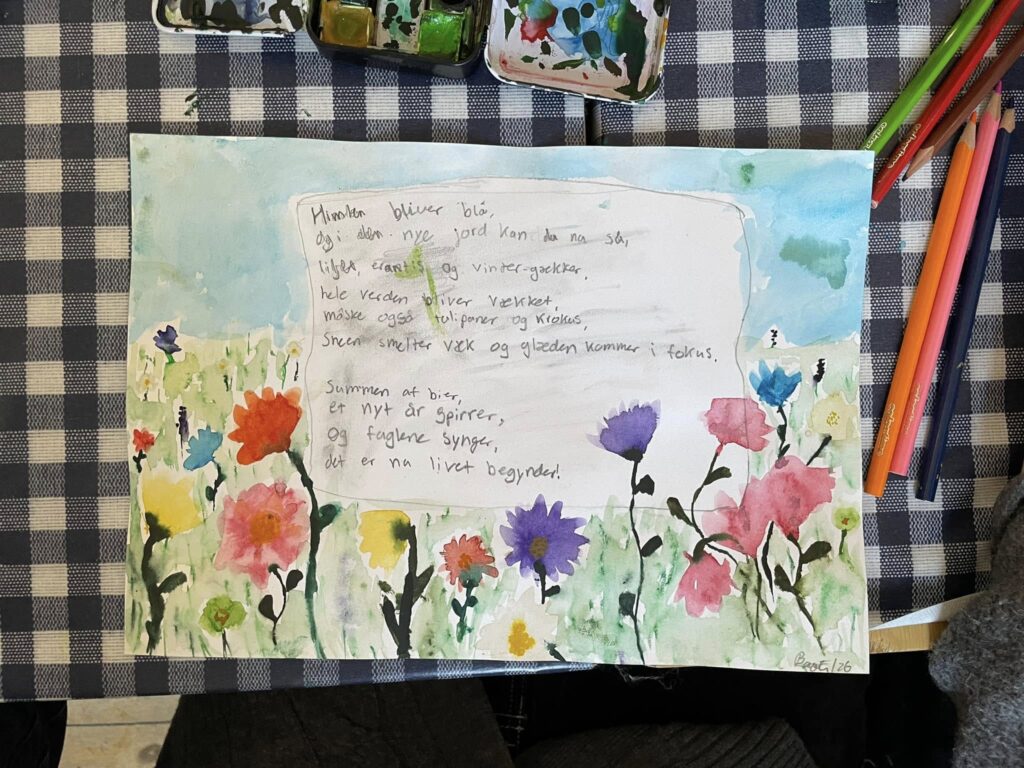 Himlen bliver blå,
og i den nye jord kan du nu så,
liljer, erantis og vinter-gækker,
hele verden bliver vækket,
måske også tulipaner og krokus,
Sneen smelter væk og glæden kommer i fokus.
Summen af bier,
et nyt år spirrer,
og fuglene synger,
det er nu livet begynder!
/26